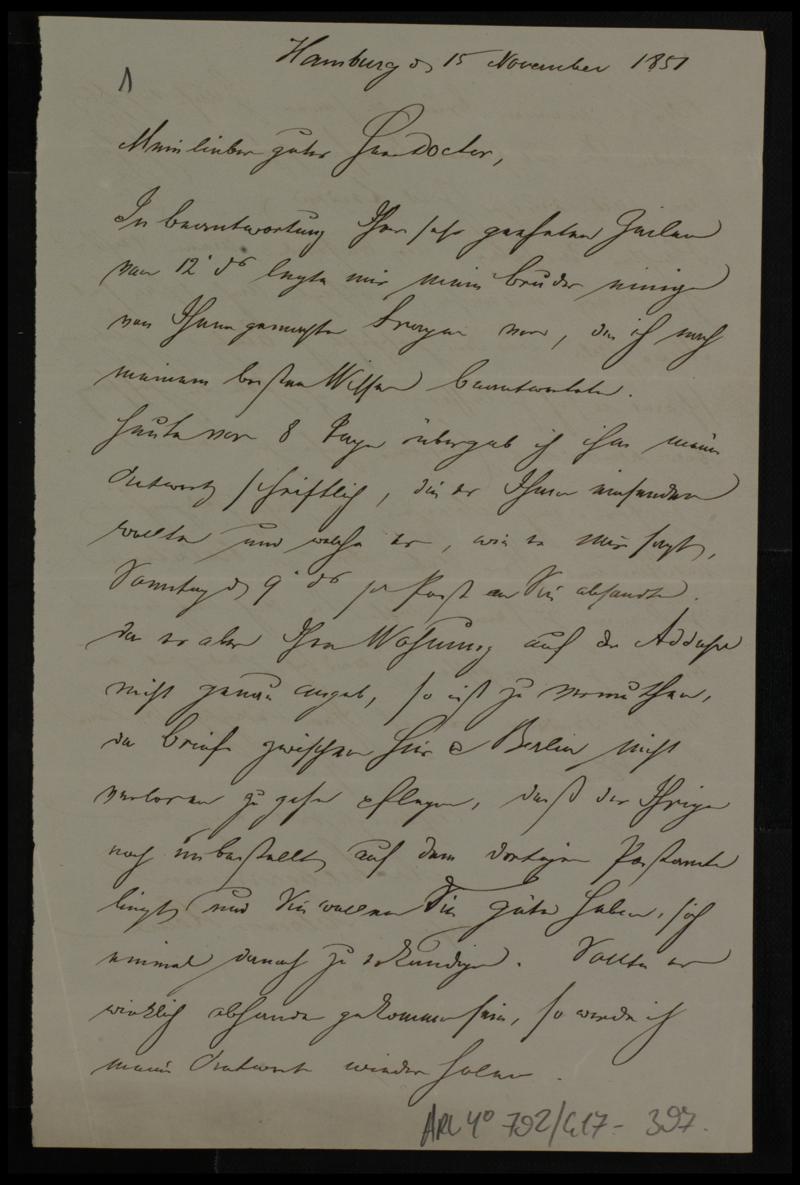 Hamburg d 15 November 1851
1
Mein lieber guter Herr Doctor,
In beantwortung Ihrer sehr geehrten Zeilen
vom 12' ds legte mir mein bruder einige
von Ihnen gemachte Fragen vor, die ich nach
meinem besten Wissen beantwortete.
Heute vor 8 Tage übergab ich ihm meine
Antwort schriftlich, die er Ihnen einsenden
wollte und welche er, wie er mir sagt,
Sonntag d 9' ds pr Post an Sie absandte.
da er aber Ihre Wohnung auf der Addresse
nicht genau angab, so ist zu vermuthen,
da briefe zwischen hier & Berlin nicht
verloren zu gehn pflegen, daß der Ihrige
noch unbestellt auf dem dortigen Postamte
liegt und Sie wollen die güte haben, sich
einmal danach zu erkundigen. Sollte er
wirklich abhanden gekommen sein, so werde ich
meine Antwort wieder holen.
ARC 4° 792/G17- 397.